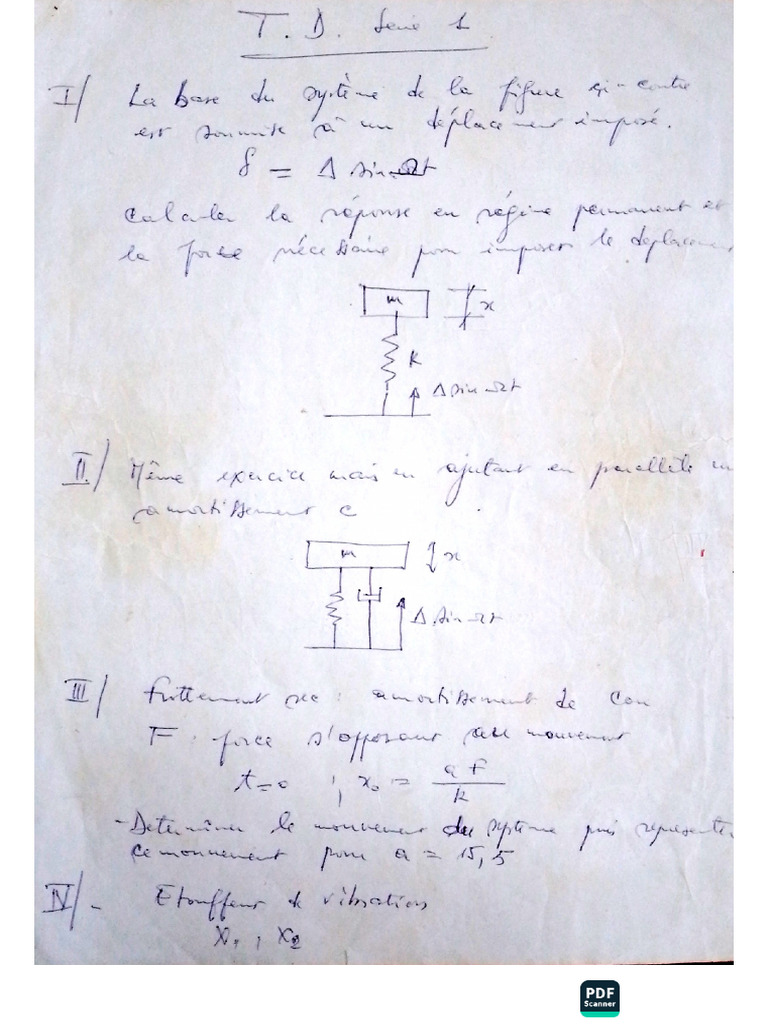 T. D. Serie 1
I/ La base du système de la figure ci-contre
est soumise à un déplacement imposé.
δ = Δ sin Ωt
Calculer la réponse en régime permanent et
la force nécessaire pour imposer le deplacement
m
x
k
Δ sin Ωt
II/ Même exercice mais en ajutant en parallèle un
amortissement c
m
x
Δ sin Ωt
III/ Frottement sec : amortissement de Cou
F : force s'opposant au mouvement
t=0 ; x₀ = aF/k
- Determiner le mouvement du système puis representer
ce mouvement pour a = 15,5
IV/- Etouffeur de vibrations
X₁, X₂
PDF
Scanner